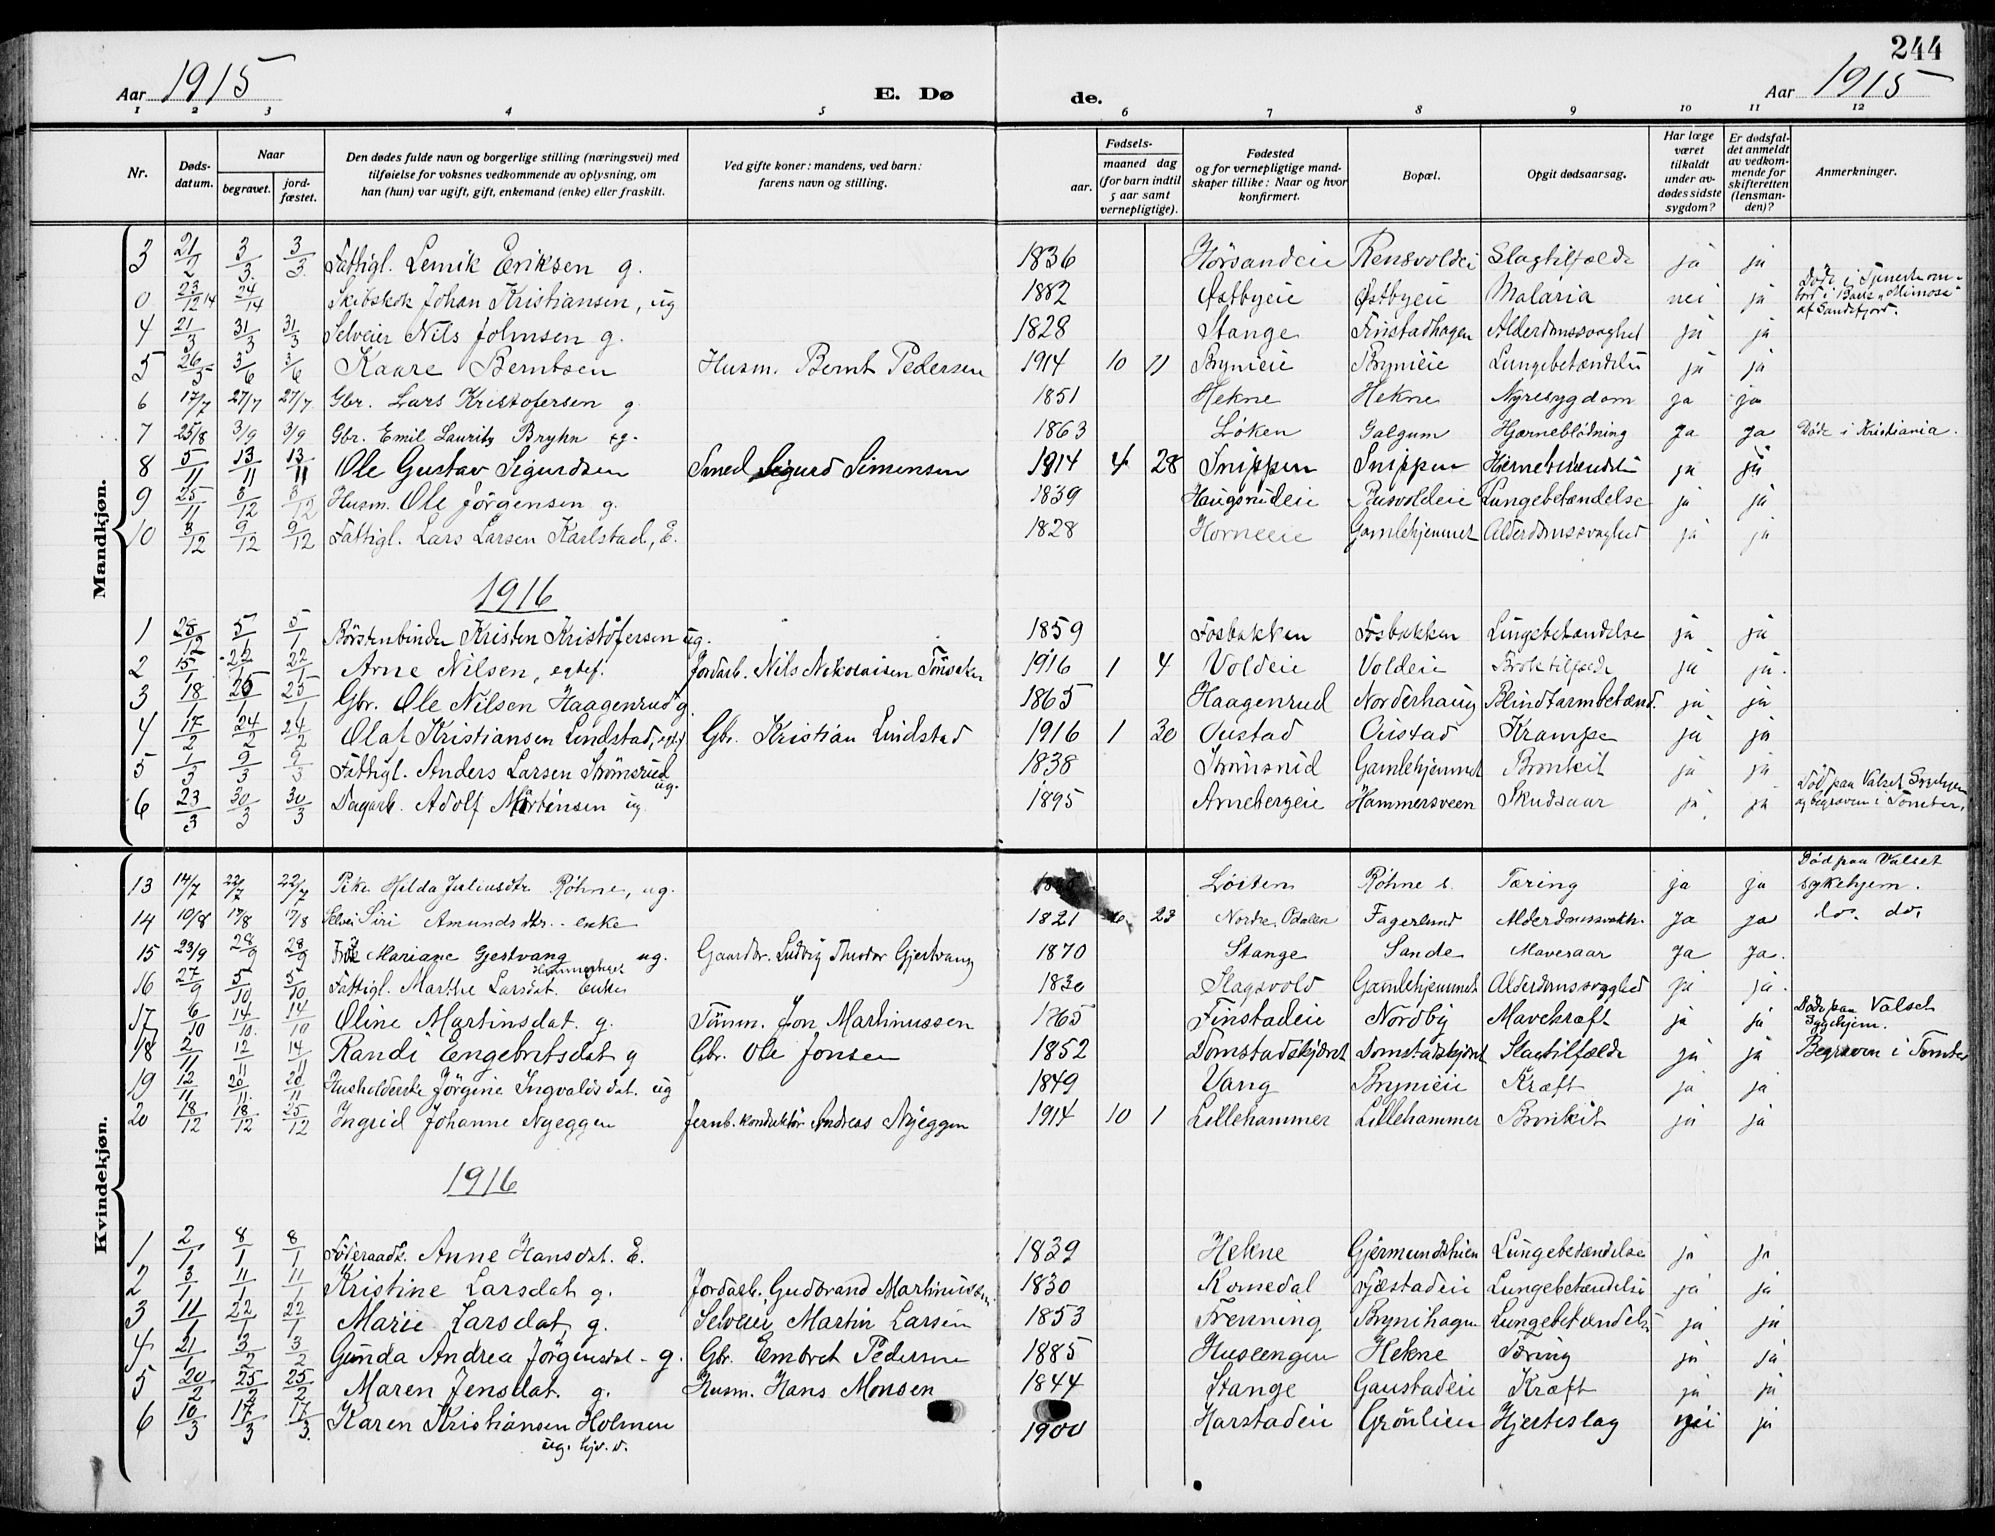 244
Aar 1915 E. Dø de. Aar 1915
1 2 3 4 5 6 7 8 9 10 11 12
Nr. Døds-datum. Naar begravet. jord-fæstet. Den dødes fulde navn og borgerlige stilling (næringsvei) med tilføielse for voksnes vedkommende av oplysning, om han (hun) var ugift, gift, enkemand (enke) eller fraskilt. Ved gifte koner: mandens, ved barn: farens navn og stilling. Fødsels- aar. maaned dag (for barn indtil 5 aar samt vernepligtige). Fødested og for vernepligtige mand-skaper tillike: Naar og hvor konfirmert. Bopæl. Opgit dødsaarsag. Har læge været tilkaldt under av-dødes sidste sygdom? Er dødsfal-det anmeldt av vedkom-mende for skifteretten (lensman-den)? Anmerkninger.
Mandkjøn.
3 21/2 3/3 3/3 Fattigl. Lemik Eriksen g. 1836 Hørsandeie Rensvoldei Slagtilfælde ja ja
0 23/12 14 24/14 Skibskok Johan Kristiansen, ug 1882 Østbyeie Østbyeie Malaria nei ja Døde i Tjeneste om-bord i Bark "Mimosa" af Sandefjord.
4 21/3 31/3 31/3 Selveier Nils Johnsen g. 1828 Stange Finstadhagen Alderdomssvaghet ja ja
5 26/5 3/6 3/6 Kaare Berntsen Husm. Bernt Pedersen 1914 10 11 Brynieie Brynieie Lungebetændelse ja ja
6 17/7 27/7 27/7 Gbr. Lars Kristofersen g. 1851 Hekne Hekne Nyresygdom ja ja
7 25/8 3/9 3/9 Gbr. Emil Lauritz Bryhn ug. 1863 Løken Galgum Hjærneblødning Ja Ja Døde i Kristiania.
8 5/11 13/11 13/11 Ole Gustav Sigurdsen Smed Sigurd Simensen 1914 4 28 Snippen Snippen Hjernebetændelse ja ja
9 25/11 3/12 3/12 Husm. Ole Jörgensen g. 1839 Haugsrudeie Rusvoldeie Lungebetændelse ja ja
10 3/12 9/12 9/12 Fattigl. Lars Larsen Karlstad, E. 1828 Horneeie Gamlehjemmet Alderdomssvaghed ja ja
1916
1 28/12 5/1 5/1 Börstenbinder Kristen Kristofersen ug. 1859 Fosbakken Fosbakken Lungebetændelse ja ja
2 15/1 22/1 22/1 Arne Nilsen, egtef. Jordarb. Nils Nikolaisen Tönsaker 1916 1 4 Voldeie Voldeie Broktilfælde ja ja.
3 18/1 25/1 25/1 Gbr. Ole Nilsen Haagenrud g. 1865 Haagenrud Norderhaug Blindtarmbetænd. ja ja
4 17/2 24/2 24/2 Olaf Kristiansen Lindstad, egtef Gbr. Kristian Lindstad 1916 1 30 Oustad Oustad Krampe ja ja
5 1/3 9/3 9/3 Fattigl. Anders Larsen Strömsrud ug. 1838 Strömsrud Gamlehjemmet Bronkit ja ja
6 23/3 30/3 30/3 Dagarb. Adolf Mortensen ug. 1895 Arnebergeie Hammersveen Skudsaar ja ja Död paa Valset Sygehjem og begraven i Tomter.
Kvindekjøn.
13 14/7 22/7 22/7 Pike Hilda Juliusdtr. Röhne, ug. Löiten Röhne s. Tæring ja ja Död paa Valset sykehjem.
14 10/8 17/8 17/8 Selvei Siri Amundsdtr. enke 1821 23 Nordre Odalen Fagerlund Alderdomssvakh. Ja ja do. do.
15 23/9 28/9 28/9 Mariane Gjestvang ug. Gaardbr. Ludvig Theodor Gjestvang 1870 Stange Sande Mavesaar Ja Ja.
16 27/9 5/10 5/10 Fattigl. Marthe Larsdat. enke 1830 Slagsvold Gamlehjemmet Alderdomssvaghed ja ja.
17 6/10 14/10 14/10 Oline Martinsdat. g. Tömm. Jon Martinussen 1865 Finstadeie Nordby Mavekræft ja ja Död paa Valset Sygehjem.
18 2/11 12/11 14/11 Randi Engebretsdat g Gbr. Ole Jonsen 1852 Domstadskjæret Domstadskjæret Slagtilfælde ja ja Begraven i Tomter
19 12/11 20/11 20/11 Husholderske Jörgine Ingvaldsdat. ug 1849 Vang Brynieie Kræft ja ja
20 18/12 18/12 25/12 Ingrid Johanne Nyeggen Jernb. konduktör Andreas Nyeggen 1914 10 1 Lillehammer Lillehammer Bronkit ja ja
1916
1 2/1 8/1 8/1 Föderaadk. Anne Hansdat. E. 1839 Hekne Gjermundshien Lungebetændelse ja ja
2 3/1 11/1 11/1 Kristine Larsdat g. Jordarb. Gudbrand Martinussen. 1830 Romedal Lungebetændelse ja ja
3 11/1 22/1 22/1 Marie Larsdat, g. Selveier Martin Larsen 1853 Frenning Brynihagen Lungebetændelse ja ja
4 21/1 3/2 3/2 Gunda Andrea Jörgensdat. g. Gbr. Embret Pedersen 1885 Huseengen Hekne Tæring ja ja
5 20/2 25/2 25/2 Maren Jensdat. g. Husm. Hans Monsen 1844 Stange Gaustadeie Kræft ja ja
6 10/3 17/3 17/3. Karen Kristiansen Holmen ug. hjv. d. 1900 Harstadeie Grönlien Hjerteslag nei ja